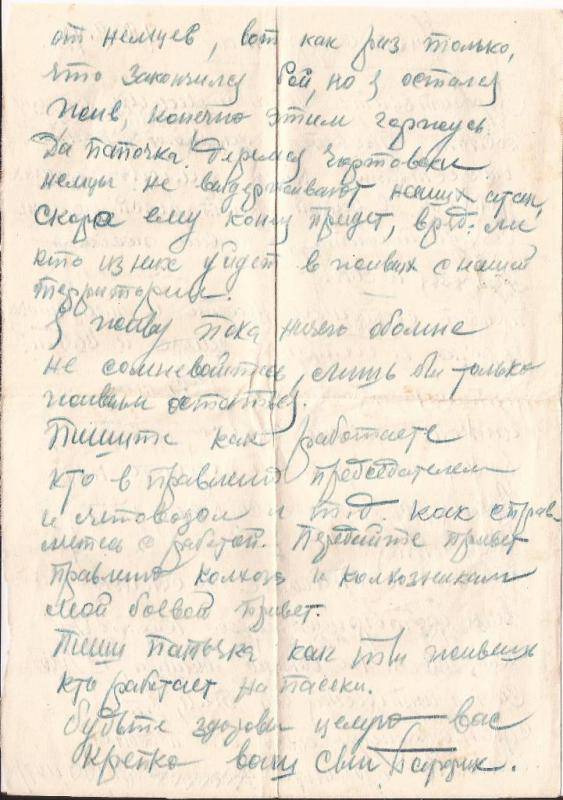 от немцев, вот как раз только,
что закончился бой, но я остался
жив, конечно этим горжусь.
Да папочка! Деремся чортовски
немцы не выдерживают наших атак,
скоро ему конец придет, вряд ли
кто из них уйдет в живых с нашей
территории.
Я живу пока ничего обомне
не сомневайтесь, лишь бы только
живым остаться
Пишите как работаете
кто в правлении председателем
и счетоводом и т.д. как справ
ляетесь с работой. Передайте привет
правлению колхоза и колхозникам
мой боевой привет.
Пиши папочка как ты живешь
кто работает на пасеки.
будьте здоровы целую вас
крепко ваш сын